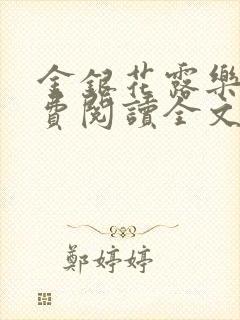 金銀花露樂
費閱讀全文
鄭婷婷